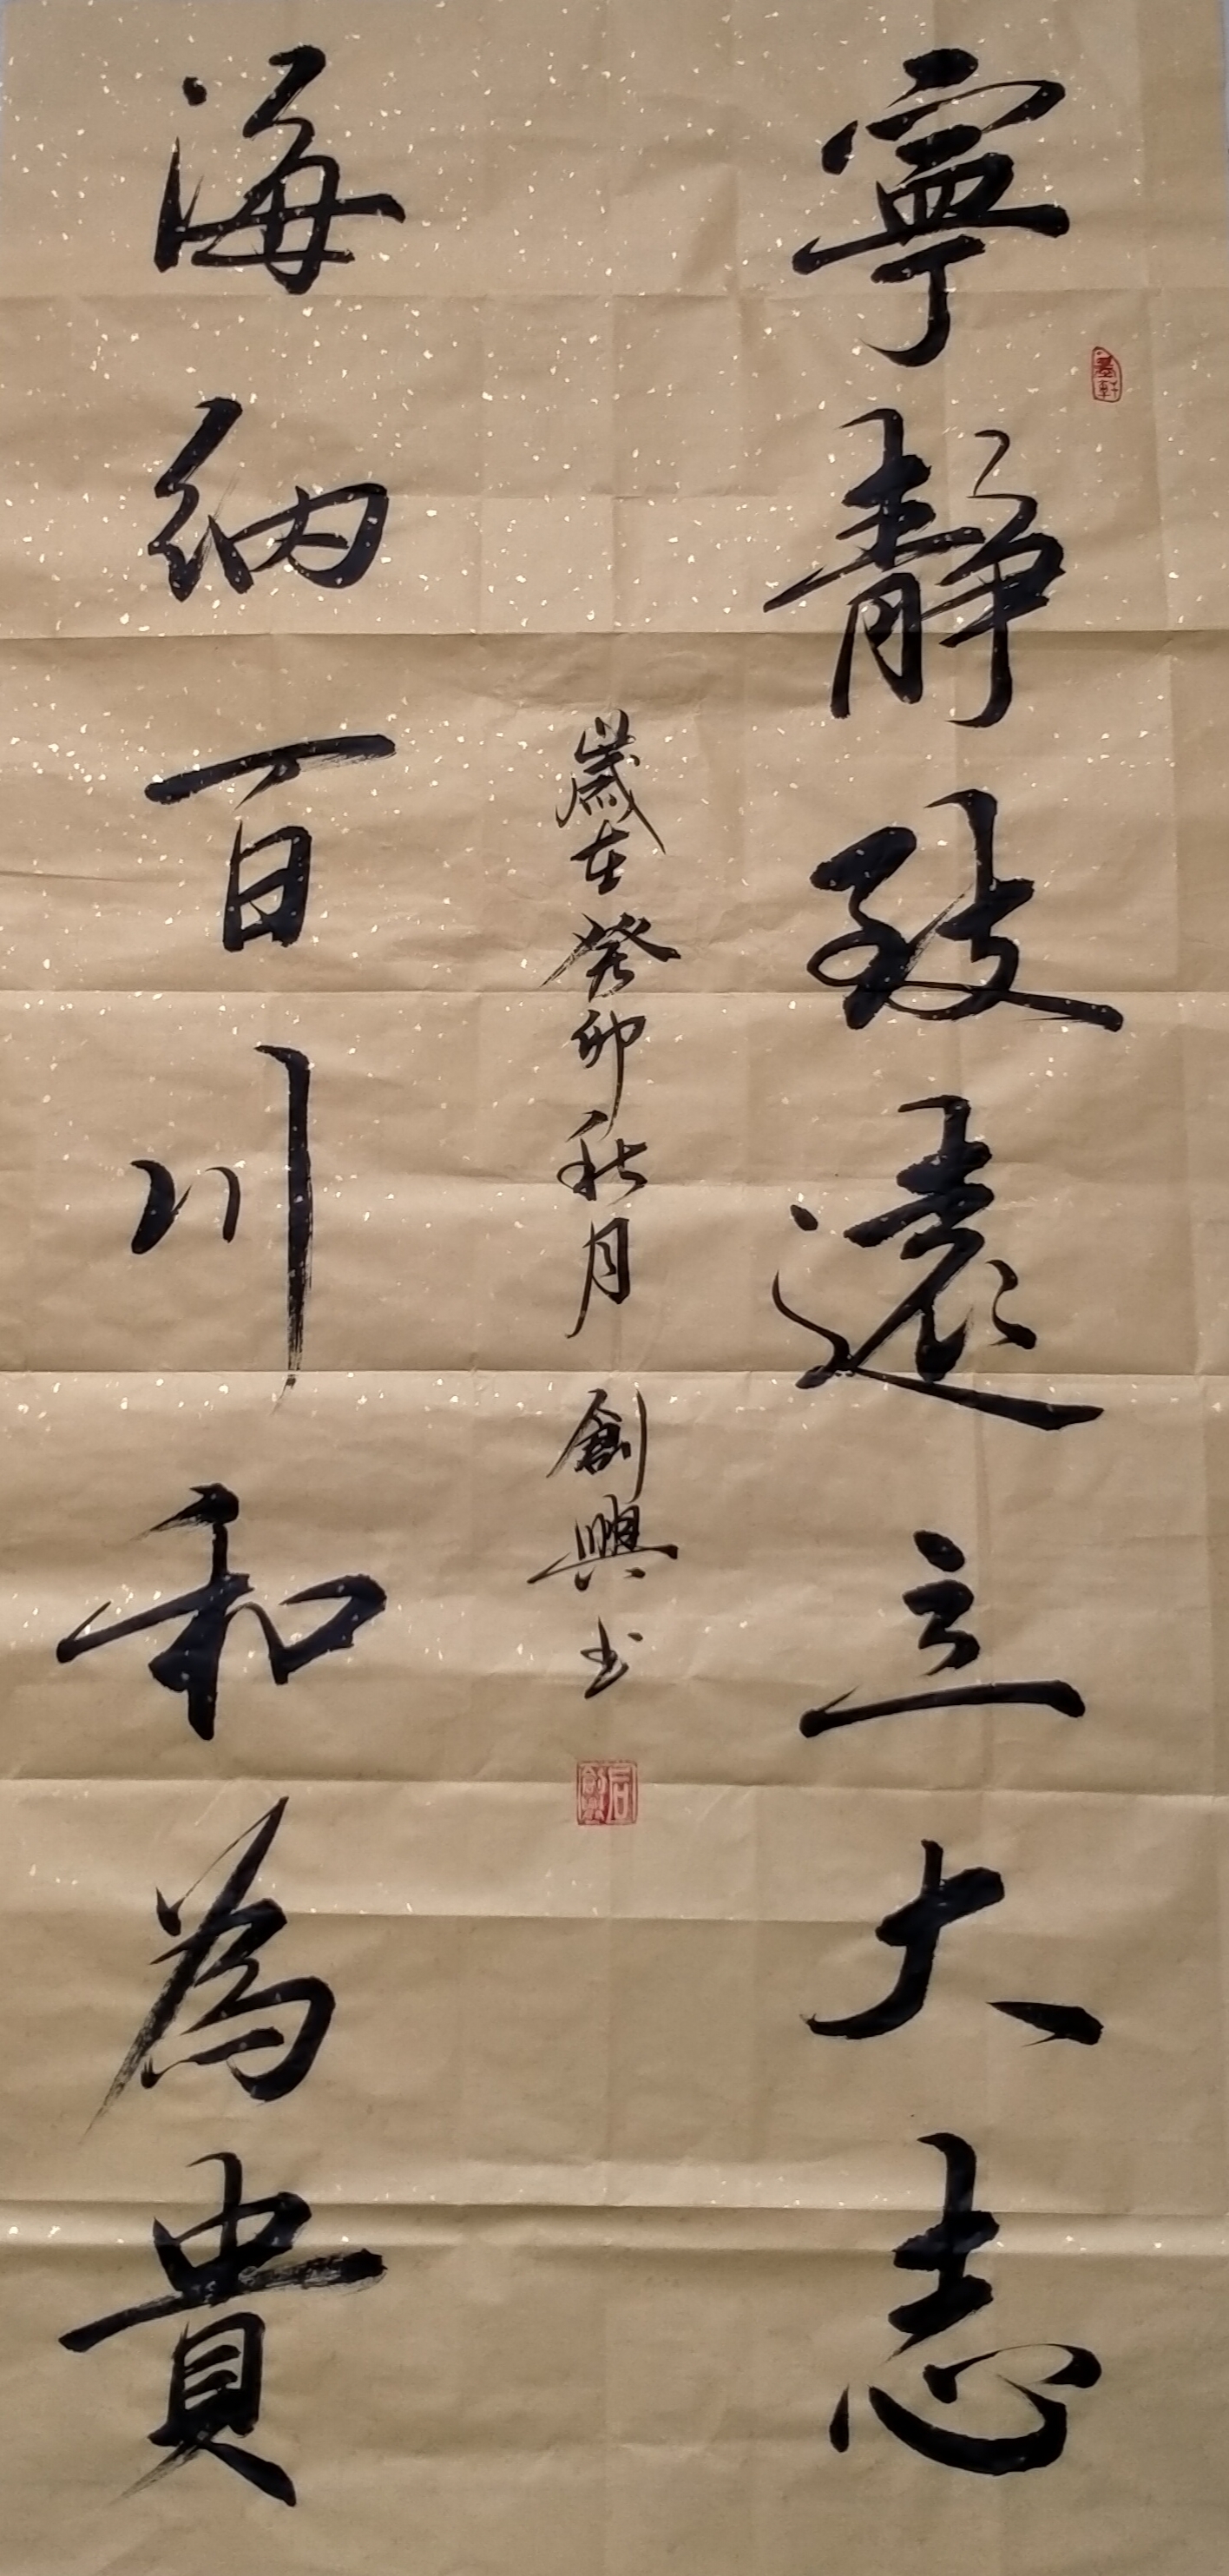 寧靜致遠立大志
海納百川和為貴
歲在癸卯秋月 創興书